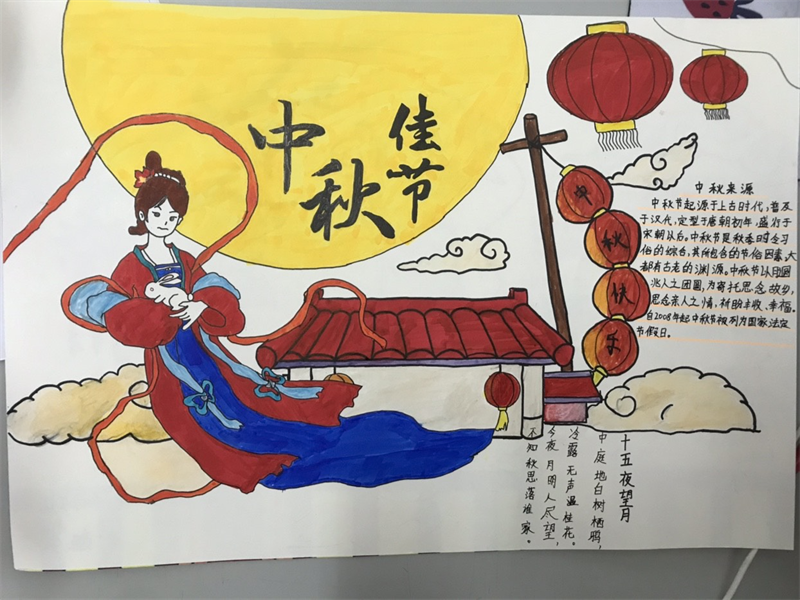 中秋
佳节
中秋快乐
中秋来源
中秋节起源于上古时代,普及
于汉代,定型于唐朝初年,盛行于
宋朝以后。中秋节是秋季时令习
俗的综合,其所包含的节俗因素,大
都有古老的渊源。中秋节以月圆
兆人之团圆,为寄托思念故乡,
思念亲人之情,祈盼丰收、幸福。
自2008年起中秋节被列为国家法定
节假日。
十五夜望月
中庭地白树栖鸦,
冷露无声湿桂花。
今夜月明人尽望,
不知秋思落谁家。